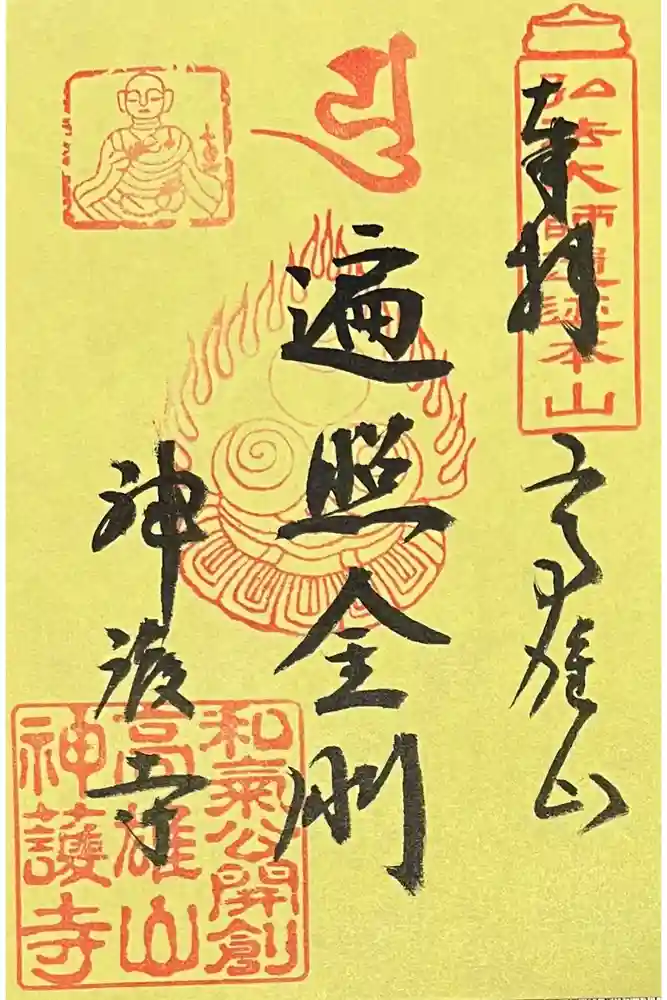 弘法大師遺迹本山
奉拝
高雄山
遍照金剛
神護寺
和氣公開創
高雄山
神護寺